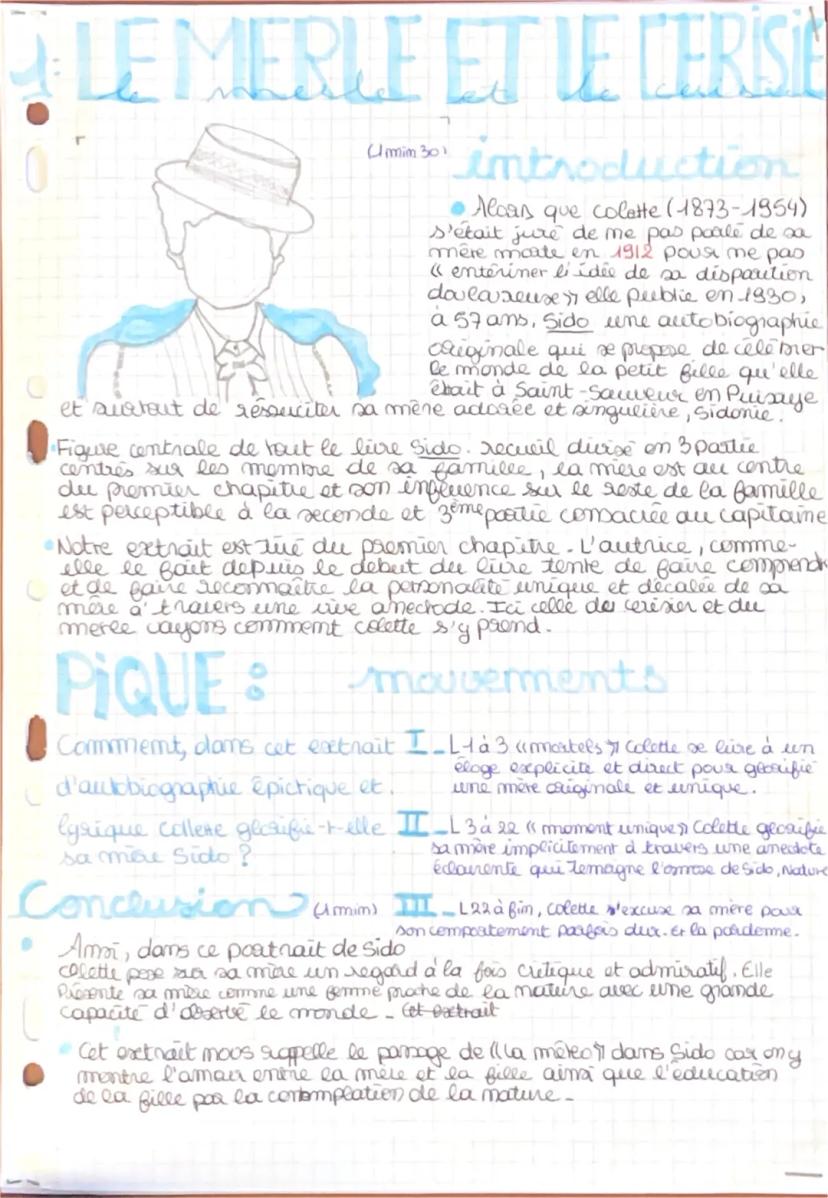 1: LE MERLE ET LE CERISIE
le merle et le cerisier
(1 min 30)
introduction
• Alors que colette (1873-1954)
s'était juré de ne pas parlé de sa
mère morte en 1912 pour ne pas
« entériner l'idée de sa disparition
douloureuse » elle publie en 1930,
à 57 ans, Sido une autobiographie
originale qui se propose de célébrer
le monde de la petit fille qu'elle
était à Saint-Sauveur en Puisaye
et surtout de réssuciter sa mère adorée et singulière, Sidonie.
• Figure centrale de tout le livre Sido. recueil divisé en 3 partie
centrés sur les membre de sa famille, la mère est au centre
du premier chapitre et son influence sur le reste de la famille
est perceptible à la seconde et 3ème partie consacrée au capitaine
• Notre extrait est tiré du premier chapitre. L'autrice, comme-
elle le fait depuis le début du livre tente de faire comprendr
et de faire reconnaître la personalité unique et décalée de sa
mère à travers une vive anecdode. Ici celle des cerisier et du
merle voyons comment colette s'y prend.
PiQUE :
mouvements
Comment, dans cet extrait
d'autobiographie épictique et
lyrique collette glorifie-t-elle
sa mère Sido ?
I_ L1 à 3 « mortels » Colette se livre à un
éloge explicite et direct pour glorifié
une mère originale et unique.
II_ L3 à 22 « moment unique » Colette glorifie
sa mère implicitement à travers une anecdote
éclairente qui témagne l'amour de Sido, Nature
III_ L22 à fin, colette s'excuse sa mère pour
son comportement parfois dur. Et la pardonne.
Conclusion (1 min)
• Ainsi, dans ce portrait de Sido
colette pose sur sa mère un regard à la fois critique et admiratif. Elle
Présente sa mère comme une femme proche de la nature avec une grande
capacité d'observé le monde _ Cet extrait
• Cet extrait nous rappelle le passage de « La météo » dans Sido car on y
montre l'amour entre la mère et la fille ainsi que l'éducation
de la fille par la contemplation de la nature _